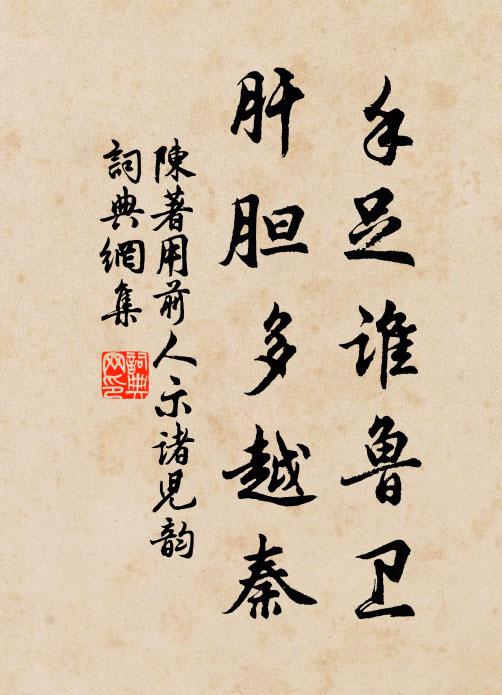 手足谁鲁卫
肝胆多越秦
陳著用前人示诸児韵
詞典網集
詞典网印